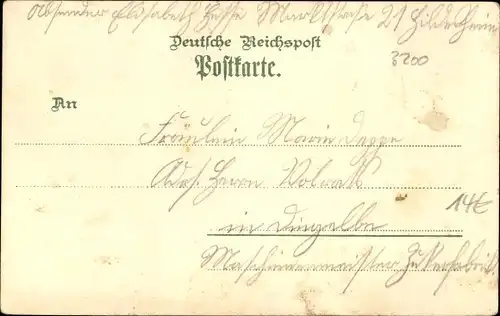 Absender Elisabeth Hesse Marktstraße 21 Hildesheim
Deutsche Reichspost
Postkarte.
3200
An
Fräulein Marie Deppe
Adr. Herrn Volrath
14€
in Dingelbe
Maschinenmeister Zuckerfabrik.